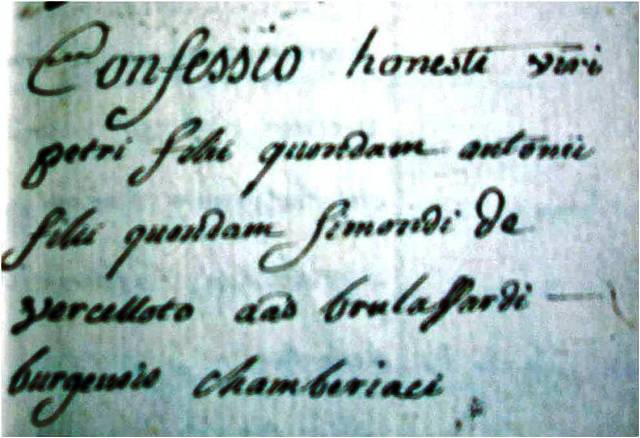 Confessio honesti viri
petri filii quondam antonii
filii quondam simondi de
vercelloto aad brulaffardi
burgensis chamberiaci